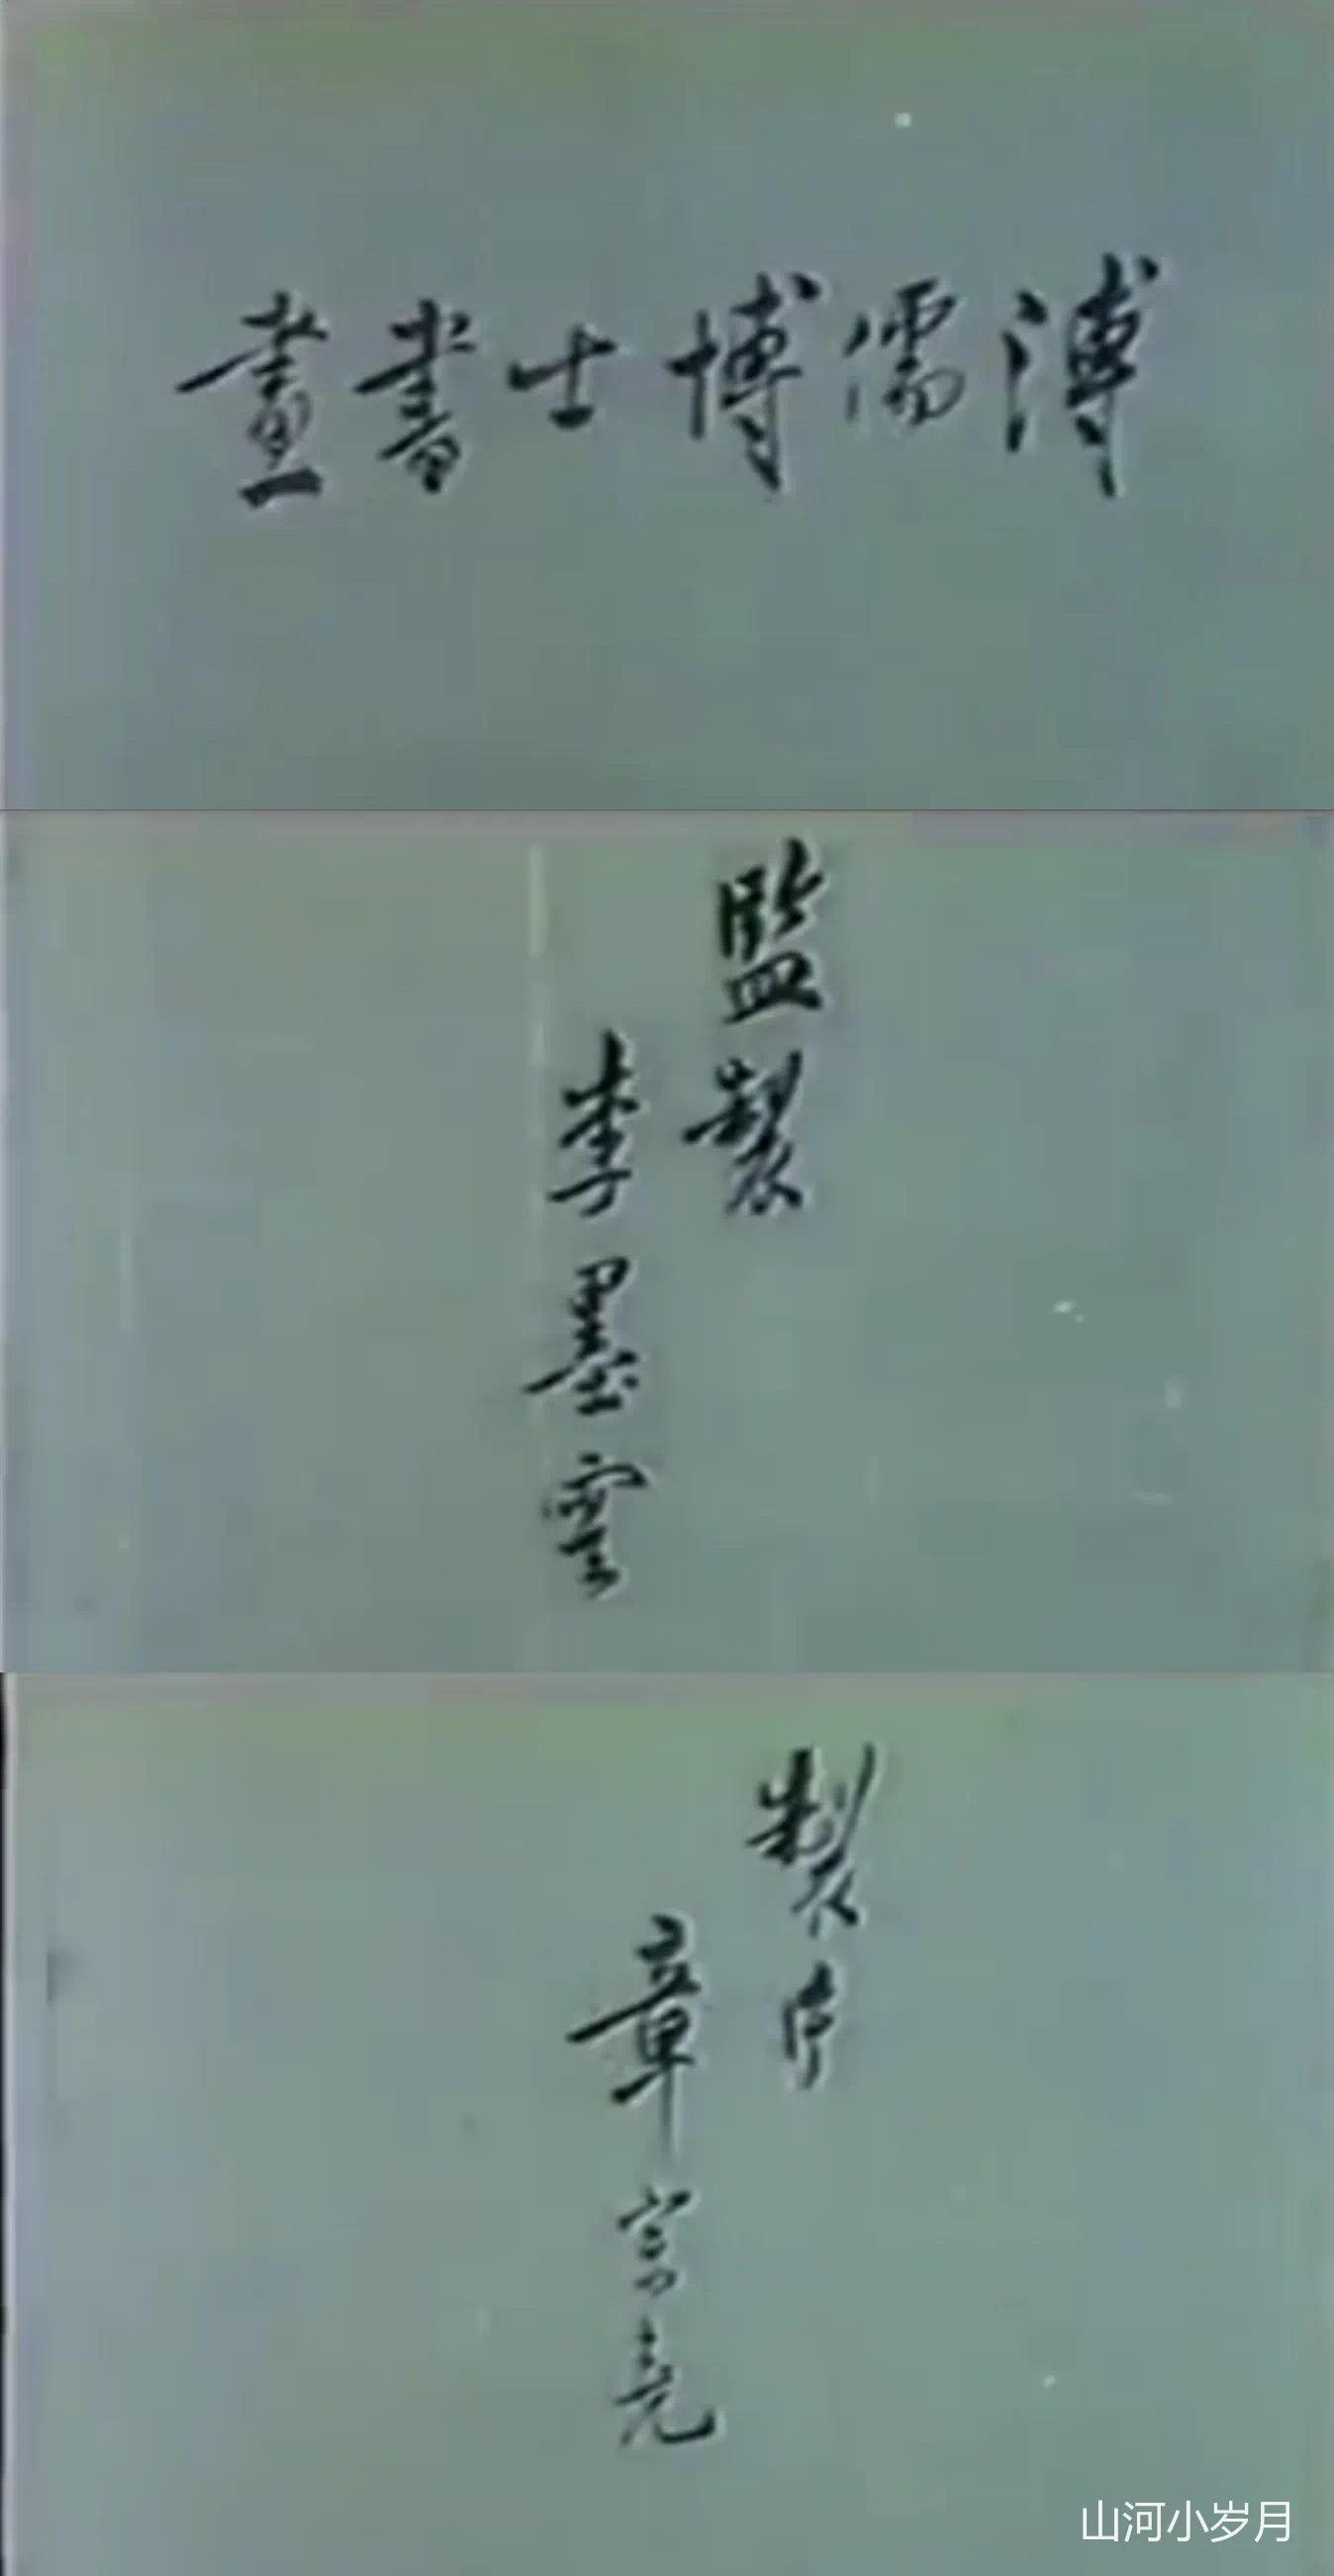 溥儒博士書畫
監製
李墨雲
製片
章宗堯
山河小岁月